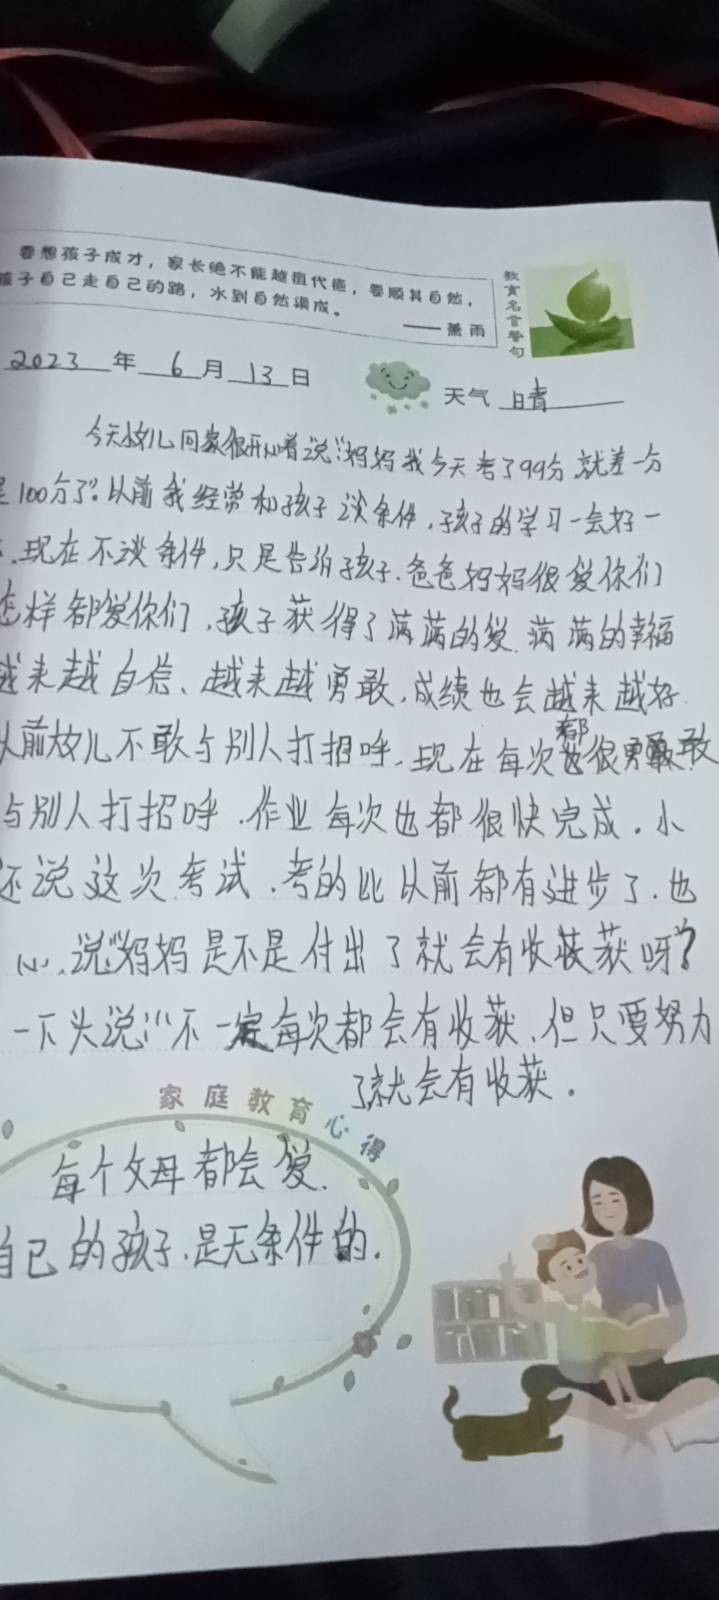 要想孩子成才，家长绝不能越俎代疱，要顺其自然，
孩子自己走自己的路，水到自然渠成。
——萧雨
教育名言警句
2023年6月13日
天气 晴
今天放儿回家很开心着说：“妈妈我今天考了99分就差一分
是100分了”。以前我经常和孩子谈条件，孩子的学习一会好一
.现在不谈条件，只是告诉孩子.爸爸妈妈很爱你们
怎样都爱你们，孩子获得了满满的爱.满满的幸福
越来越自信、越来越勇敢，成绩也会越来越好.
从前放儿不敢与别人打招呼，现在每次都很勇敢
与别人打招呼.作业每次也都很快完成。小
还说这次考试.考的比以前都有进步了.也
心，说“妈妈是不是付出了就会有收获呀”？
一下头说：“不一定每次都会有收获、但只要努力
了就会有收获。
家庭教育心得
每个父母都会爱.
自己的孩子.是无条件的.